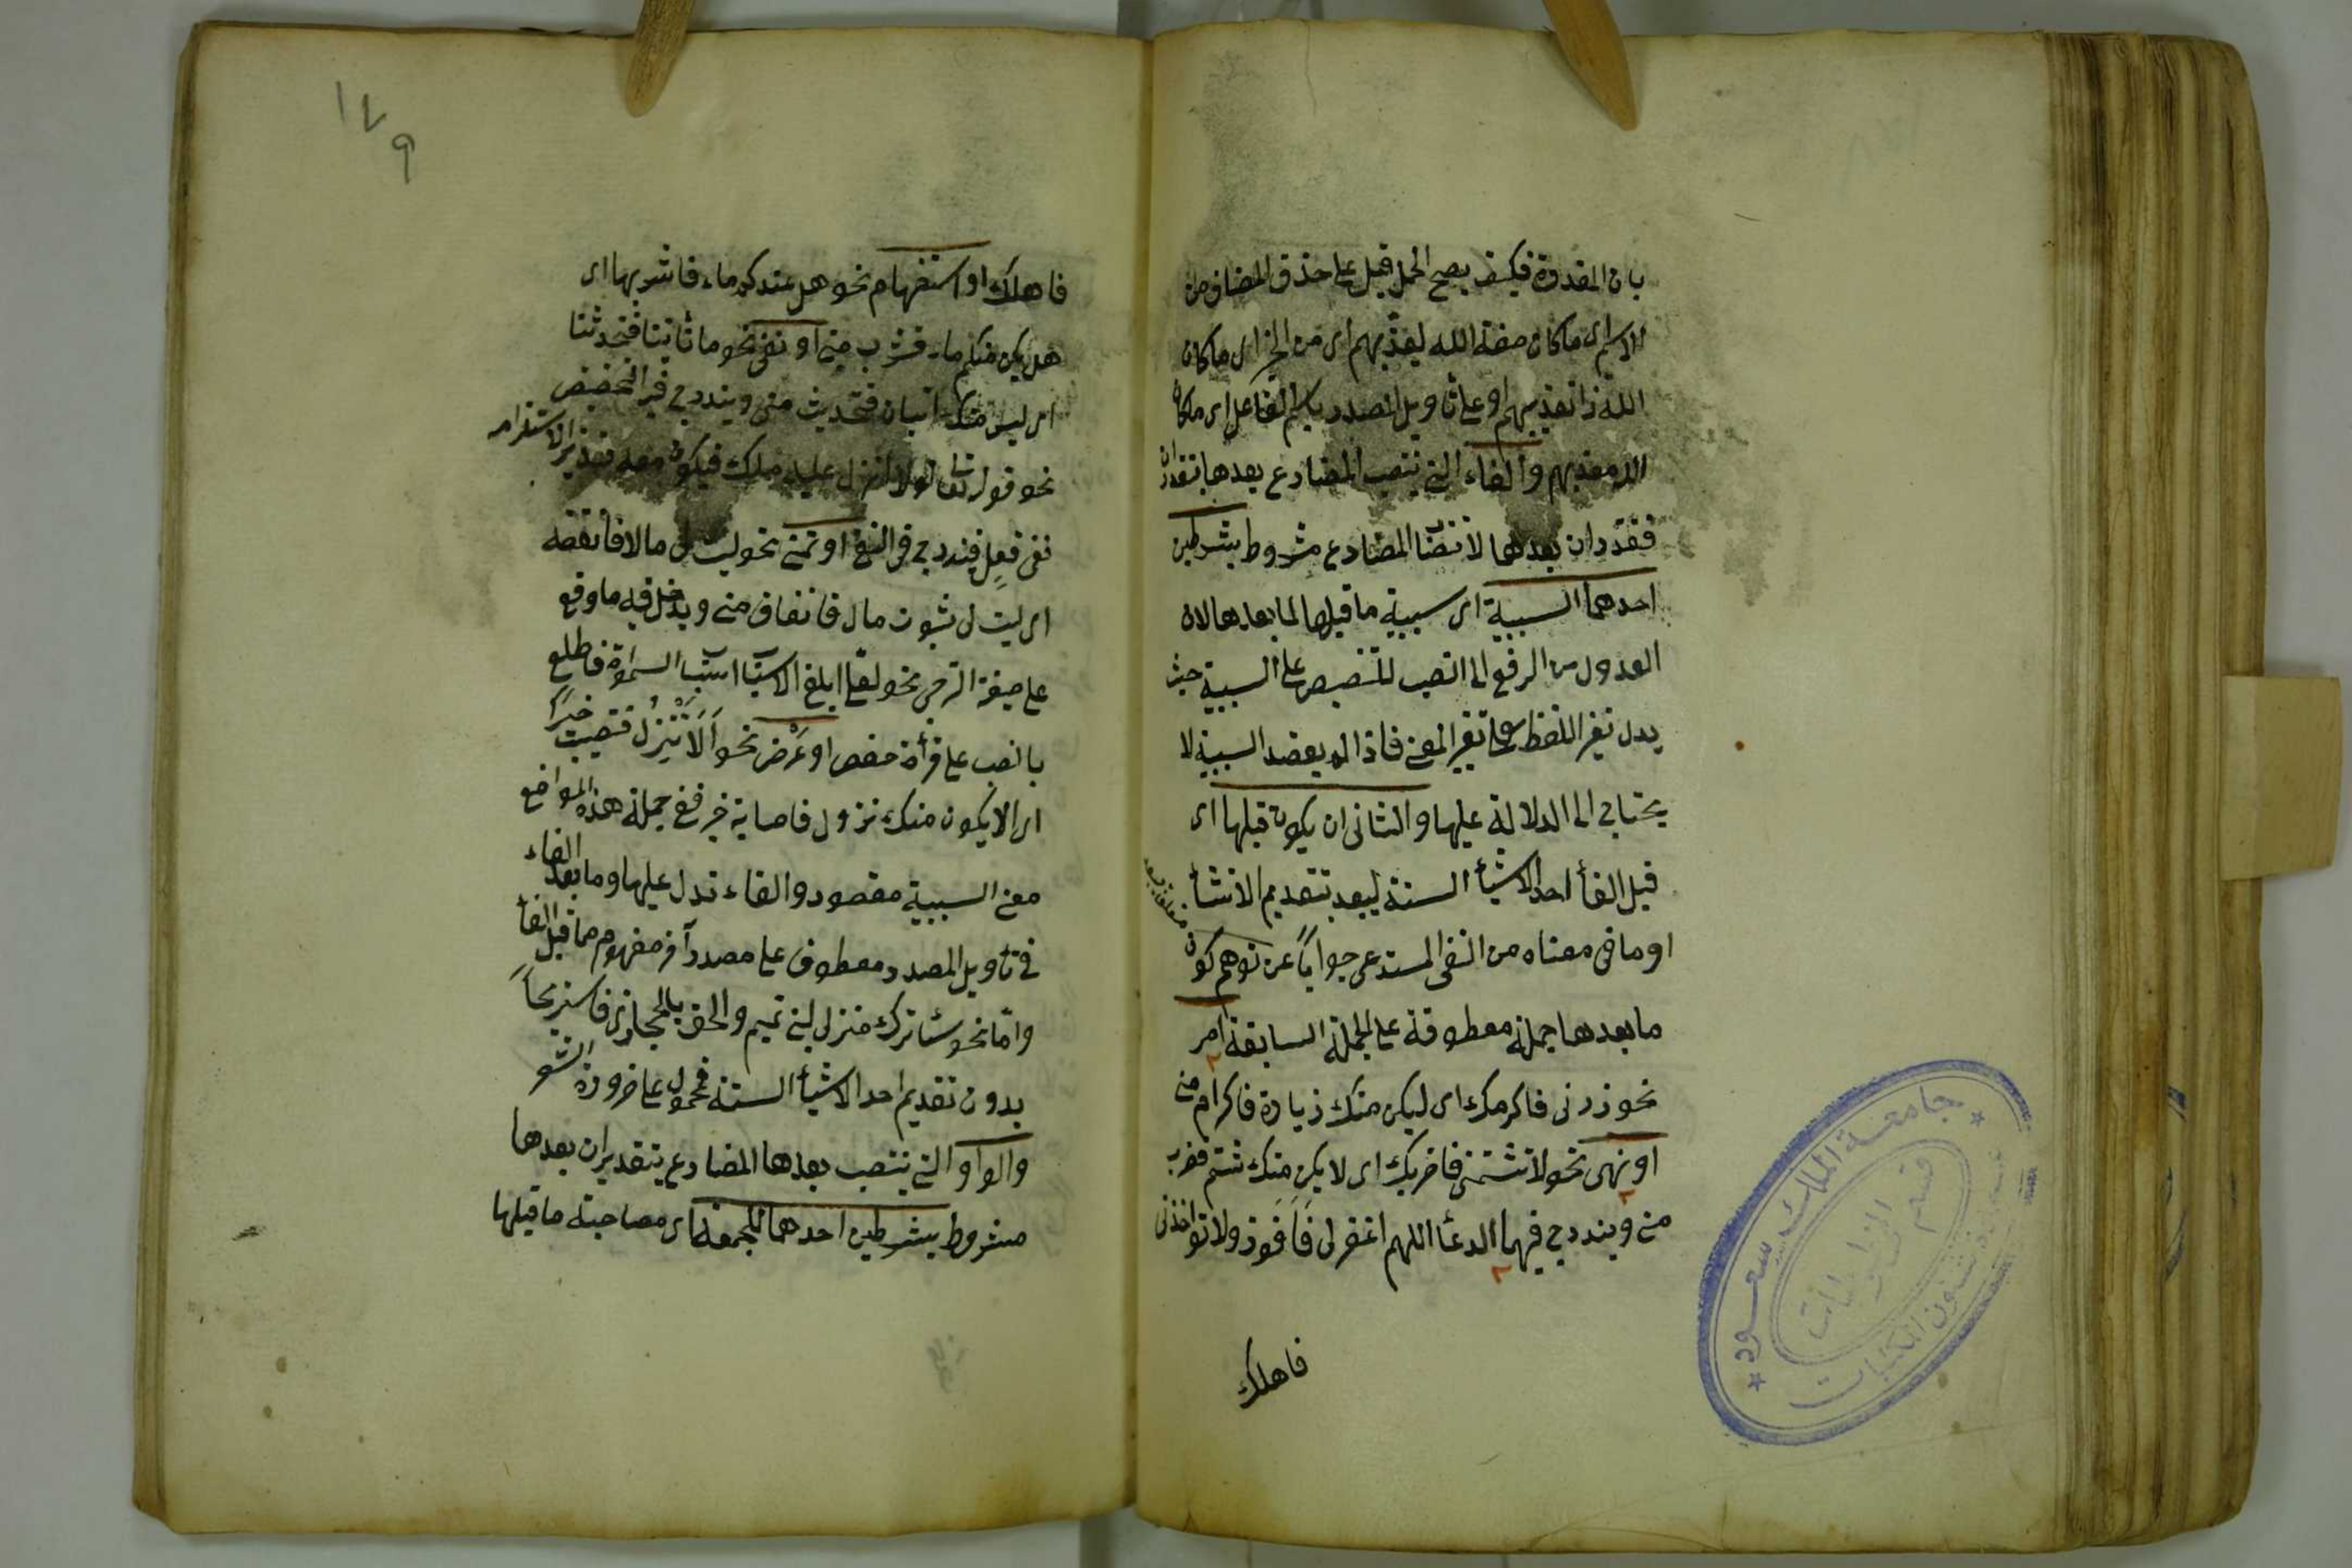 بان المقدرة فكيف يصح الحمل قيل على حذف المضاف من
الاسم اى ما كان صفة الله ليعذبهم اى من الخبر اى ما كان
الله ذا تعذيبهم او على تأويل المصدر باسم الفاعل اى ما كان
الله معذبهم والفاء التى ينتصب المضارع بعدها بتقدير ان
فتقدير ان بعدها لانتصاب المضارع مشروط بشرطين
احدهما السببية اى سببية ما قبلها لما بعدها لان
العدول من الرفع الى النصب للتنصيص على السببية حيث
يدل تغير اللفظ على تغير المعنى فاذا لم يقصد السببية لا
يحتاج الى الدلالة عليها والثانى ان يكون قبلها اى
قبل الفاء احد الاشياء الستة ليبعد بتقديم الانشاء
او ما فى معناه من النفى المستدعى جوابا عن توهم كون
ما بعدها جملة معطوفة على الجملة السابقة امر
نحو زرنى فاكرمك اى ليكن منك زيارة فاكرام منى
او نهى نحو لا تشتمنى فاضربك اى لا يكن منك شتم فضرب
منى ويندرج فيهما الدعاء اللهم اغفر لى فَاَفوز ولا تواخذنى
فاهلك
جامعة الملك سعود
قسم المخطوطات
عمادة شئون المكتبات
١٧٩
فاهلك او استفهام نحو هل عندكم ماء فاشربها اى
هل يكن منكم ماء فشرب منى او نفى نحو ما تأتينا فتحدثنا
اى ليس منك اتيان فتحديث منى ويندرج فيه التحضيض
نحو قوله تعالى لولا انزل عليه ملك فيكون معه نذيرا لاستلزامه
نفى فعل فيندرج فى النفى او تمنى نحو ليت لى مالا فانفقه
اى ليت لى ثبوت مال فانفاق منى ويدخل فيه ما وقع
على صيغة الترجى نحو لعلى ابلغ الاسباب اسباب السموات فاطلع
بالنصب على قرأة حفص او عَرْض نحو اَلَا تَنْزِلُ فتصيب خيرًا
اى الا يكون منك نزول فاصابة خير ففى جملة هذه المواضع
معنى السببية مقصود والفاء تدل عليها وما بعد الفاء
فى تأويل المصدر معطوف على مصدر آخر مفهوم مما قبل الفاء
واما نحو ساترك منزلى لبنى تميم والحق بالحجاز فاستريحاً
بدون تقديم احد الاشياء الستة فمحمول على ضرورة الشعر
والواو التى ينتصب بعدها المضارع بتقدير ان بعدها
مشروط بشرطين احدهما الجمعية اى مصاحبة ما قبلها